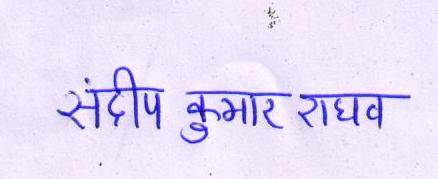 संदीप कुमार राघव